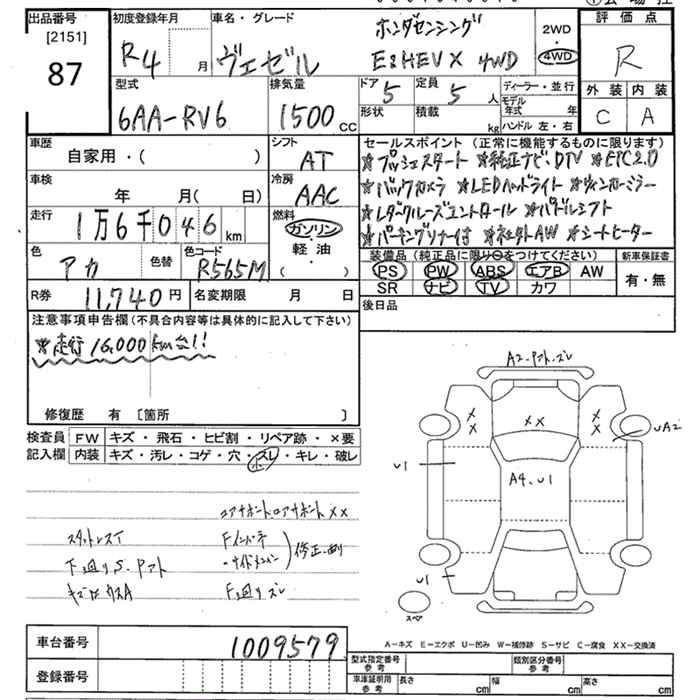 出品番号
[2151]
87
初度登録年月
R4 月
車名・グレード
ホンダセンシング
ヴェゼル E:HEV X 4WD
2WD
4WD
評価点
R
外装 内装
C A
型式
6AA-RV6
排気量
1500 cc
ドア 5
定員 5 人
形状
積載 kg
ディーラー・並行
モデル年式 年
ハンドル 左・右
車歴
自家用・( )
シフト
AT
車検
年 月( 日)
冷房
AAC
走行
1万6千046 km
燃料
ガソリン
軽油
( )
色
アカ
色替
色コード
R565M
R券
11,740円
名変期限 月 日
セールスポイント (正常に機能するものに限ります)
★プッシュスタート ★純正ナビDTV ★ETC2.0
★バックカメラ ★LEDヘッドライト ★ウィンカーミラー
★レダークルーズコントロール ★パドルシフト
★パーキングソナー付 ★社外AW ★シートヒーター
装備品 (純正品に限り○をつけてください)
PS PW ABS エアB AW
SR ナビ TV カワ
新車保証書
有・無
後日品
注意事項申告欄(不具合内容等は具体的に記入して下さい)
※走行16,000km台!!
修復歴 有 [箇所 ]
検査員記入欄
FW キズ・飛石・ヒビ割・リペア跡・×要
内装 キズ・汚レ・コゲ・穴・スレ・キレ・破レ
コアサポート、ロアサポートXX
スタットレスT
Fインパネ
下回りS.
サイドメンバー
修正あり
F下回りズレ
A2
XX
X
X
X
X
UA2
U1
A4、U1
U1
スペア
A-キズ E-エクボ U-凹み W-補修跡 S-サビ C-腐食 XX-交換済
車台番号
1009579
登録番号
型式指定番号 参考
類別区分番号 参考
車庫証明用 参考
長さ cm
幅 cm
高さ cm